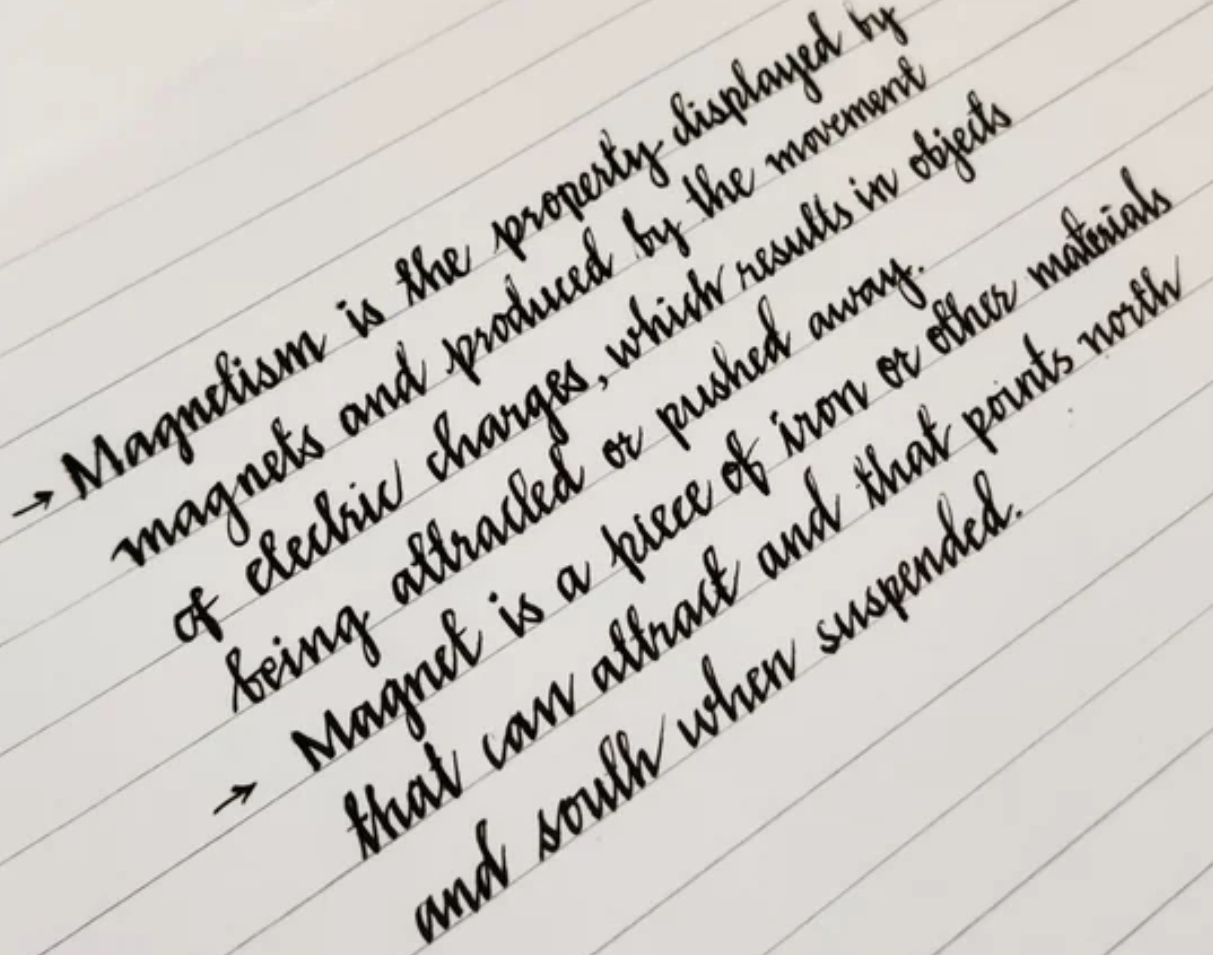 → Magnetism is the property displayed by
magnets and produced by the movement
of electric charges, which results in objects
being attracted or pushed away.
→ Magnet is a piece of iron or other materials
that can attract and that points north
and south when suspended.